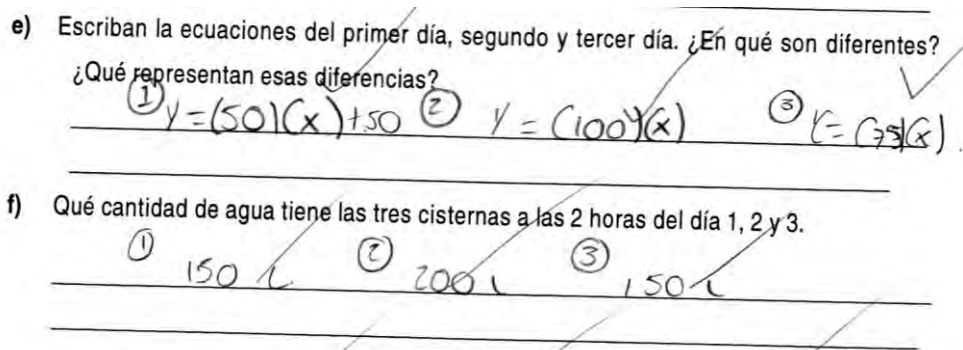 e) Escriban la ecuaciones del primer día, segundo y tercer día. ¿En qué son diferentes?
¿Qué representan esas diferencias?
① y=(50)(x)+50 ② y = (100)(x) ③ Y= (75)(x)
f) Qué cantidad de agua tiene las tres cisternas a las 2 horas del día 1, 2 y 3.
① 150 L ② 200 L ③ 150 L